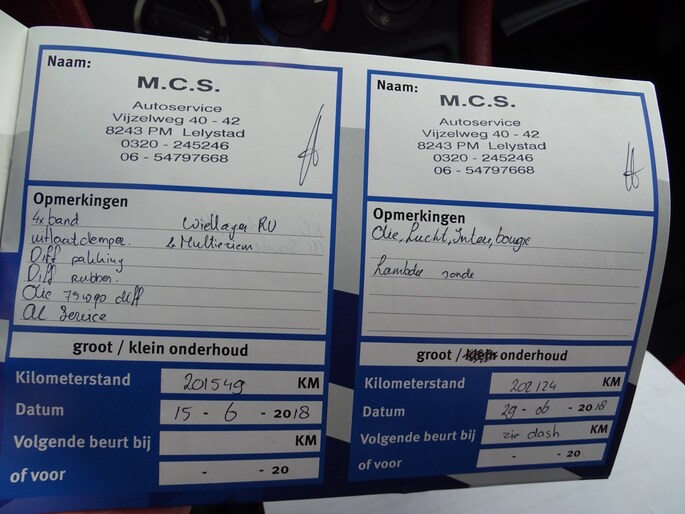 Naam:
M.C.S.
Autoservice
Vijzelweg 40 - 42
8243 PM Lelystad
0320 - 245246
06 - 54797668
Opmerkingen
4x band Wiellager RV
uitlaatdemper. & Multiriem
Diff pakking
Diff rubber.
Olie 75w90 diff
Ac Service
groot / klein onderhoud
Kilometerstand 201549 KM
Datum 15 - 6 - 2018
Volgende beurt bij KM
of voor - - 20
Naam:
M.C.S.
Autoservice
Vijzelweg 40 - 42
8243 PM Lelystad
0320 - 245246
06 - 54797668
Opmerkingen
Olie, Lucht, Inter, bougie
Lambda sonde
groot / klein onderhoud
Kilometerstand 202124 KM
Datum 29 - 06 - 2018
Volgende beurt bij zie dash KM
of voor - - 20